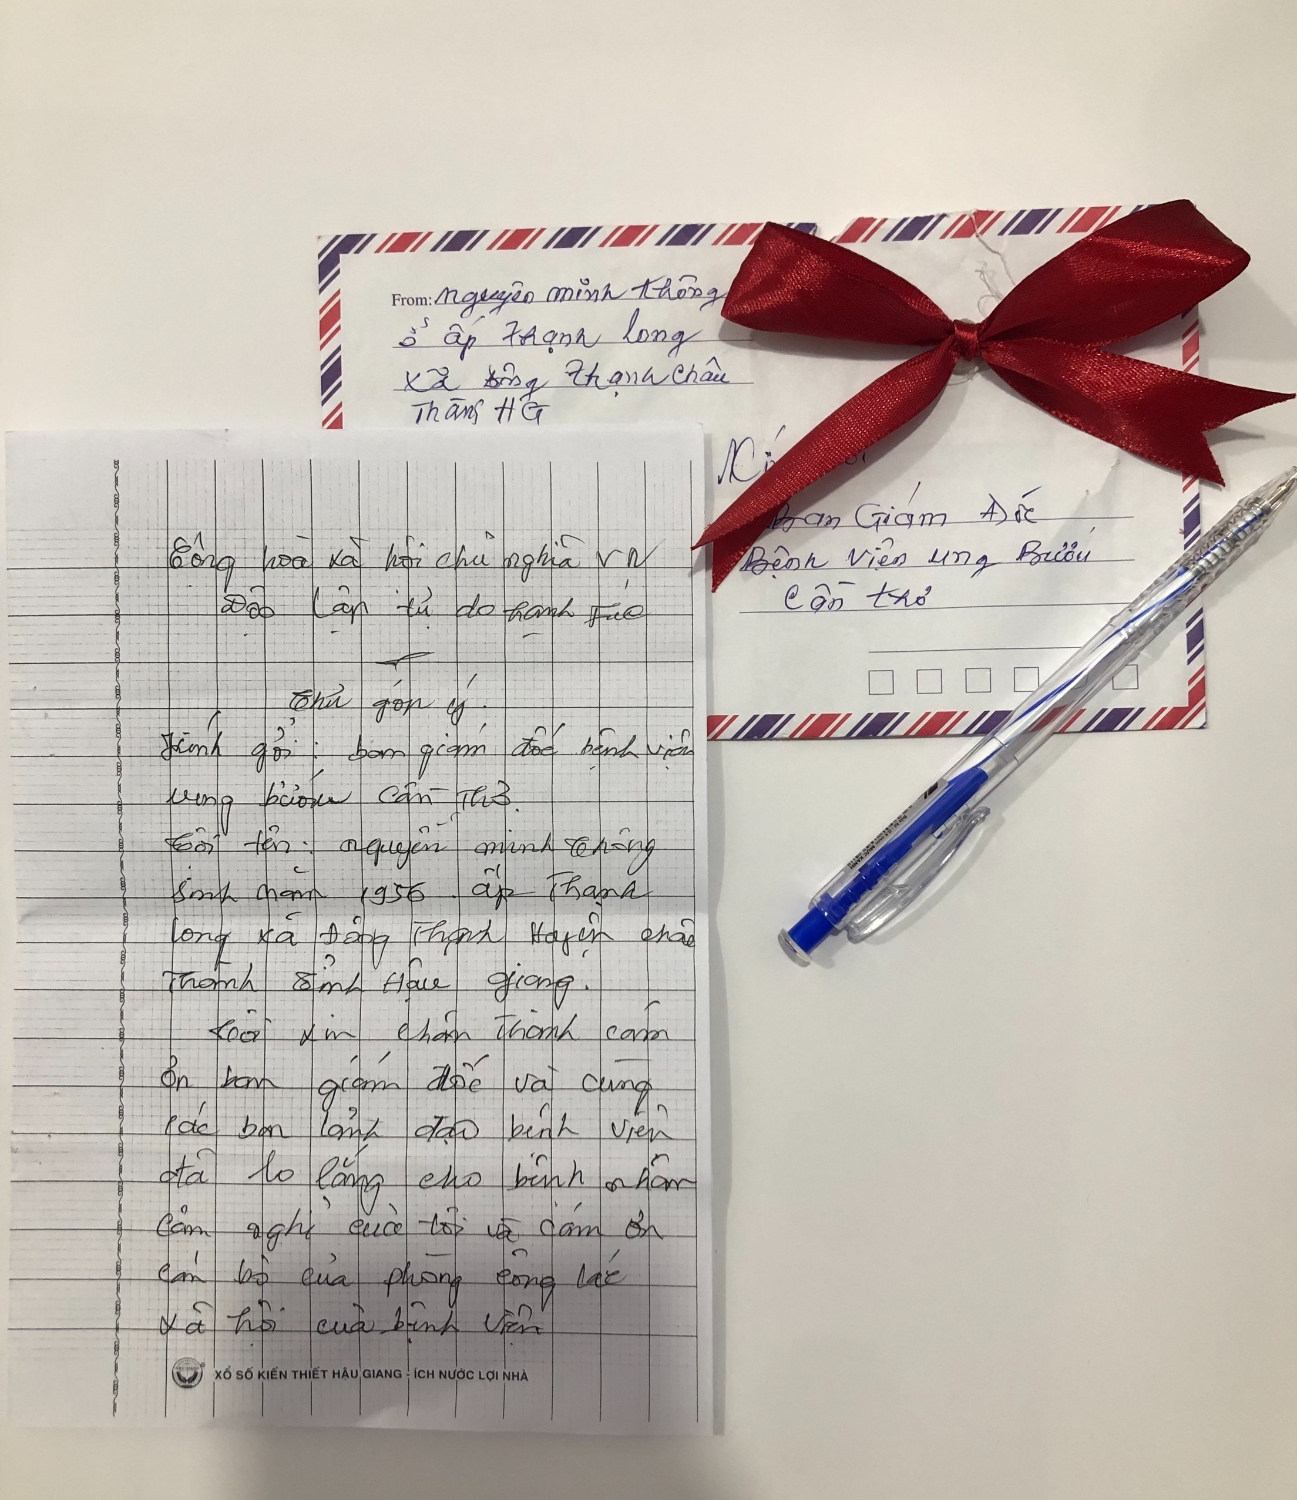 From: Nguyễn minh thông
ở ấp Thạnh long
xã đông Thạnh Châu
Thành HG
Kính
Ban Giám Đốc
Bệnh viện ung Bướu
Cần thơ
Công hoà xã hội chủ nghĩa VN
Độc lập tự do hạnh Phúc
Thư góp ý
Kính gởi: ban giám đốc bệnh viện
ung bướu Cần Thơ.
tôi tên: nguyễn minh thông
sinh năm 1956 ấp Thạnh
long xã Đông Thạnh Huyện châu
Thành tỉnh Hậu giang.
tôi xin chân thành cám
ơn ban giám đốc và cùng
các ban lảnh đạo bệnh viện
đã lo lắng cho bệnh nhân
cảm nghỉ của tôi và cám ơn
cán bộ của phòng công tác
xã hội của bệnh viện
XỔ SỐ KIẾN THIẾT HẬU GIANG - ÍCH NƯỚC LỢI NHÀ